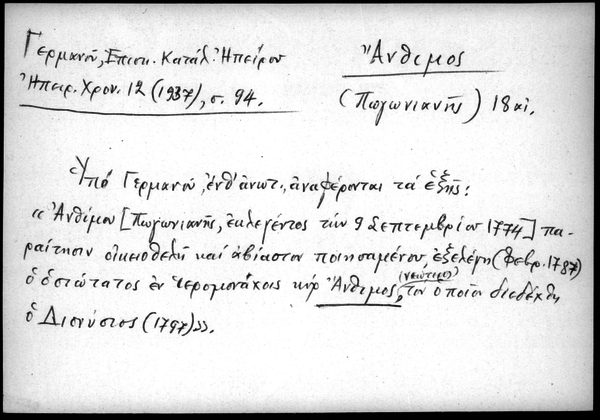 Γερμανοῦ, Ἐπισκ. Κατάλ. Ἠπείρου
Ἠπειρ. Χρον. 12 (1937), σ. 94.
Ἄνθιμος
(Πωγωνιανῆς) 18 αἰ.
Ὑπό Γερμανοῦ, ἐνθ' ἀνωτ., ἀναφέρονται τά ἑξῆς:
«Ἀνθίμου [Πωγωνιανῆς, ἐκλεγέντος τήν 9 Σεπτεμβρίου 1774] πα-
ραίτησιν οἰκειοθελῆ καί ἀβίαστον ποιησαμένου, ἐξελέγη (Φεβρ. 1787)
ὁ ὁσιώτατος ἐν ἱερομονάχοις κύρ Ἄνθιμος (νεώτερος), τόν ὁποῖον διεδέχθη
ὁ Διονύσιος (1797)».